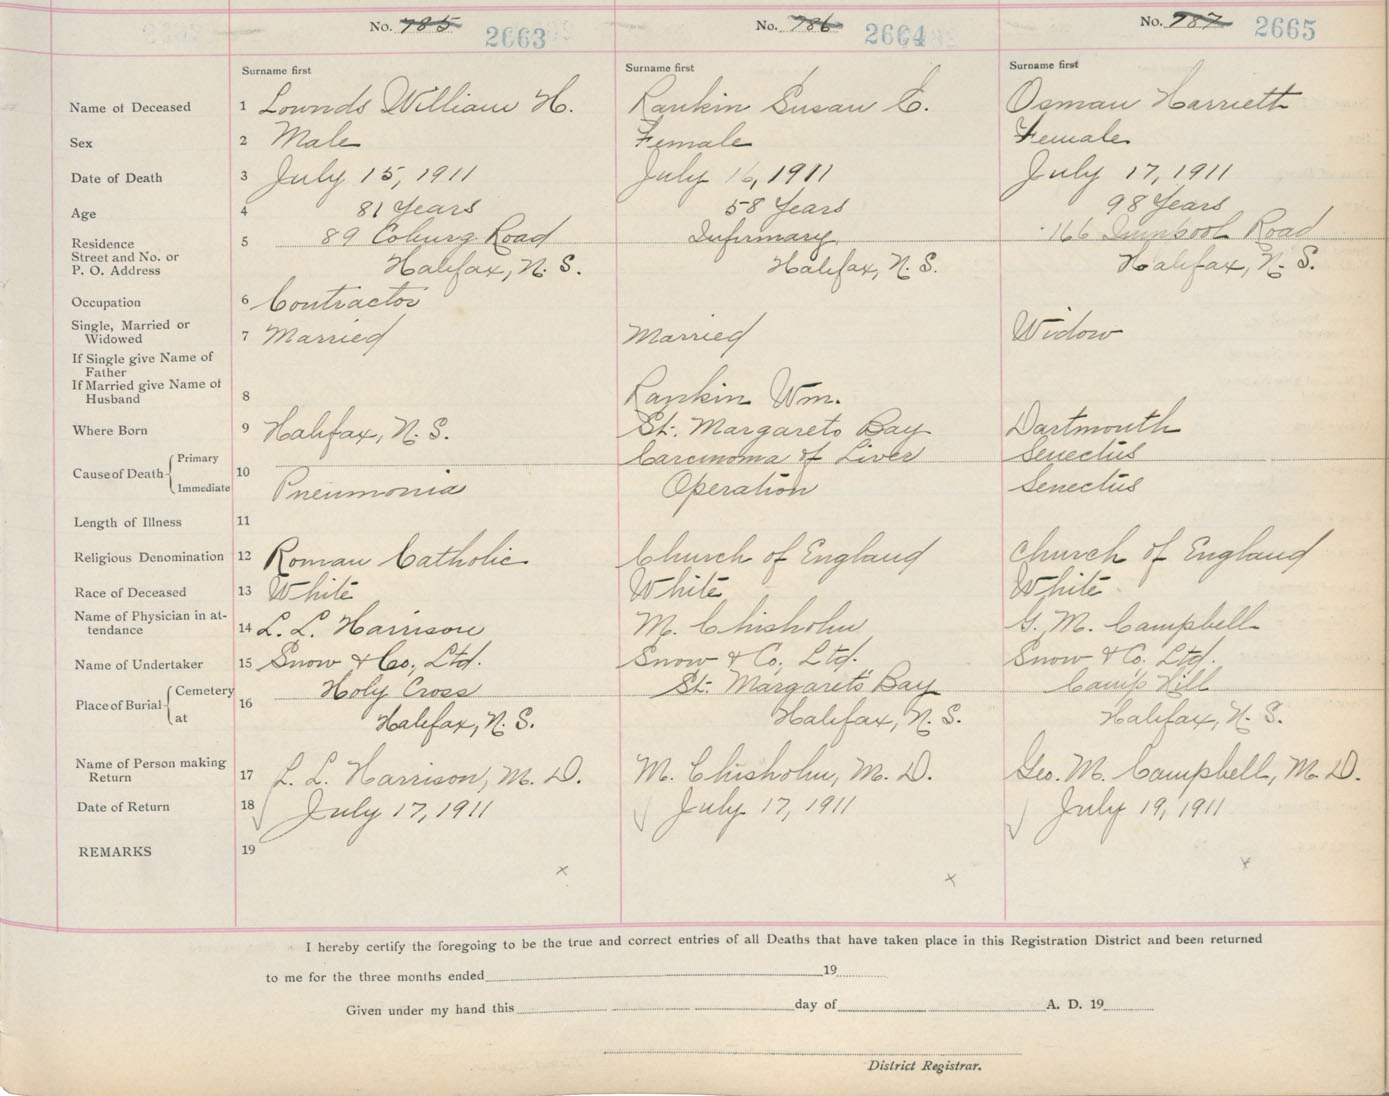 No. 785 2663
No. 786 2664
No. 787 2665
Surname first Surname first Surname first
Name of Deceased 1 Lownds William H. Rankin Susan E. Osman Harriett
Sex 2 Male Female Female
Date of Death 3 July 15, 1911 July 16, 1911 July 17, 1911
Age 4 81 Years 58 Years 98 Years
Residence 5 89 Coburg Road Infirmary 166 Road
Street and No. or
P. O. Address Halifax, N. S. Halifax, N. S. Halifax, N. S.
Occupation 6 Contractor
Single, Married or
Widowed 7 Married Married Widow
If Single give Name of
Father
If Married give Name of
Husband 8 Rankin Wm.
Where Born 9 Halifax, N. S. St. Margarets Bay Dartmouth
Cause of Death Primary 10 Carcinoma of Liver Senectus
Immediate Pneumonia Operation Senectus
Length of Illness 11
Religious Denomination 12 Roman Catholic Church of England Church of England
Race of Deceased 13 White White White
Name of Physician in at-
tendance 14 L. L. Harrison M. Chisholm G. M. Campbell
Name of Undertaker 15 Snow & Co., Ltd. Snow & Co., Ltd. Snow & Co. Ltd.
Place of Burial Cemetery 16 Holy Cross St. Margarets Bay Camp Hill
at Halifax, N. S. Halifax, N. S. Halifax, N. S.
Name of Person making
Return 17 L. L. Harrison, M. D. M. Chisholm, M. D. Geo. M. Campbell, M. D.
Date of Return 18 July 17, 1911 July 17, 1911 July 19, 1911
REMARKS 19
x x x
I hereby certify the foregoing to be the true and correct entries of all Deaths that have taken place in this Registration District and been returned
to me for the three months ended 19
Given under my hand this day of A. D. 19
District Registrar.